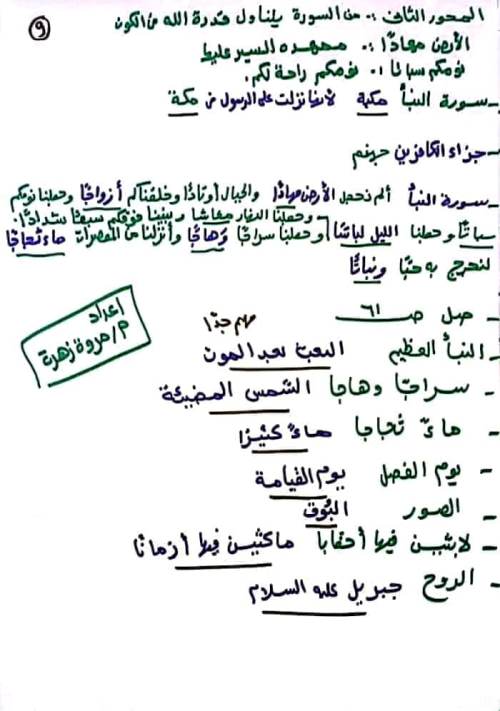 ٩
المحور الثاني :. من السورة يتناول قدرة الله في الكون
الأرض مهادًا :. ممهده للسير عليها
نومكم سباتا :. نومكم راحة لكم.
- سورة النبأ مكية لأنها نزلت على الرسول في مكة
- جزاء الكافرين جهنم
- سورة النبأ ألم نجعل الأرض مهادًا والجبال أوتادًا وخلقناكم أزواجًا وجعلنا نومكم
سباتًا وجعلنا الليل لباسًا وجعلنا النهار معاشا وبنينا فوقكم سبعًا شدادًا.
وجعلنا سراجًا وهاجًا وأنزلنا من المعصرات ماء ثجاجًا
لنخرج به حبًا ونباتًا
- صل ص ٦١
مهم جدًا
- النبأ العظيم البعث بعد الموت
- سراجًا وهاجا الشمس المضيئة
- ماءً ثجاجا ماءً كثيرًا
- يوم الفصل يوم القيامة
- الصور البوق
- لابثين فيها أحقابا ماكثين فيها أزمانًا
- الروح جبريل عليه السلام
إعداد
م/مروة زهرة